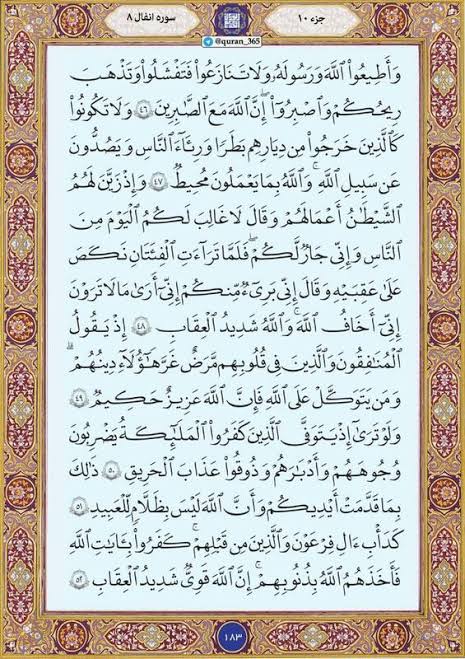 جزء ۱۰
@quran_365
سوره انفال ۸
وَأَطِيعُواْ ٱللَّهَ وَرَسُولَهُۥ وَلَا تَنَٰزَعُواْ فَتَفۡشَلُواْ وَتَذۡهَبَ
رِيحُكُمۡۖ وَٱصۡبِرُوٓاْۚ إِنَّ ٱللَّهَ مَعَ ٱلصَّٰبِرِينَ ۴۶ وَلَا تَكُونُواْ
كَٱلَّذِينَ خَرَجُواْ مِن دِيَٰرِهِم بَطَرٗا وَرِئَآءَ ٱلنَّاسِ وَيَصُدُّونَ
عَن سَبِيلِ ٱللَّهِۚ وَٱللَّهُ بِمَا يَعۡمَلُونَ مُحِيطٞ ۴۷ وَإِذۡ زَيَّنَ لَهُمُ
ٱلشَّيۡطَٰنُ أَعۡمَٰلَهُمۡ وَقَالَ لَا غَالِبَ لَكُمُ ٱلۡيَوۡمَ مِنَ
ٱلنَّاسِ وَإِنِّي جَارٞ لَّكُمۡۖ فَلَمَّا تَرَآءَتِ ٱلۡفِئَتَانِ نَكَصَ
عَلَىٰ عَقِبَيۡهِ وَقَالَ إِنِّي بَرِيٓءٞ مِّنكُمۡ إِنِّيٓ أَرَىٰ مَا لَا تَرَوۡنَ
إِنِّيٓ أَخَافُ ٱللَّهَۚ وَٱللَّهُ شَدِيدُ ٱلۡعِقَابِ ۴۸ إِذۡ يَقُولُ
ٱلۡمُنَٰفِقُونَ وَٱلَّذِينَ فِي قُلُوبِهِم مَّرَضٌ غَرَّ هَٰٓؤُلَآءِ دِينُهُمۡۗ
وَمَن يَتَوَكَّلۡ عَلَى ٱللَّهِ فَإِنَّ ٱللَّهَ عَزِيزٌ حَكِيمٞ ۴۹
وَلَوۡ تَرَىٰٓ إِذۡ يَتَوَفَّى ٱلَّذِينَ كَفَرُواْ ٱلۡمَلَٰٓئِكَةُ يَضۡرِبُونَ
وُجُوهَهُمۡ وَأَدۡبَٰرَهُمۡ وَذُوقُواْ عَذَابَ ٱلۡحَرِيقِ ۵۰ ذَٰلِكَ
بِمَا قَدَّمَتۡ أَيۡدِيكُمۡ وَأَنَّ ٱللَّهَ لَيۡسَ بِظَلَّٰمٖ لِّلۡعَبِيدِ ۵۱
كَدَأۡبِ ءَالِ فِرۡعَوۡنَ وَٱلَّذِينَ مِن قَبۡلِهِمۡۚ كَفَرُواْ بِـَٔايَٰتِ ٱللَّهِ
فَأَخَذَهُمُ ٱللَّهُ بِذُنُوبِهِمۡۚ إِنَّ ٱللَّهَ قَوِيّٞ شَدِيدُ ٱلۡعِقَابِ ۵۲
۱۸۳